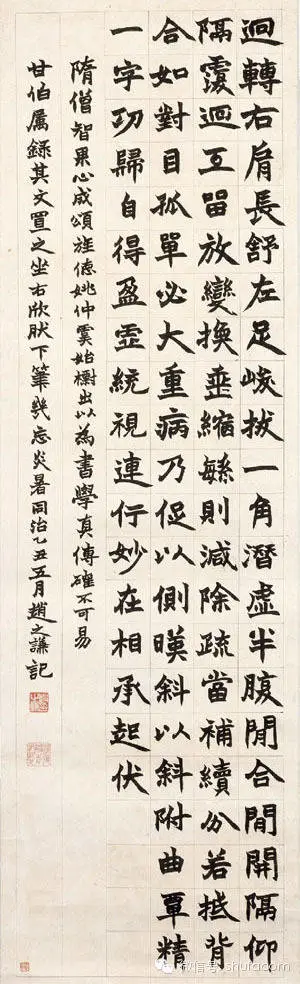 迴轉右肩長舒左足峻拔一角潛虛半腹間合間開隔仰
隔覆迴互留放變換垂縮緐則減除疏當補續分若抵背
合如對目孤單必大重病乃促以側暎斜以斜附曲覃精
一字功歸自得盈虛統視連行妙在相承起伏
隋僧智果心成頌旌德姚仲虞始出以為書學真傳確不可易
甘伯屬錄其文置之坐右欣肰下筆幾忘炎暑同治乙丑五月趙之謙記
微信号